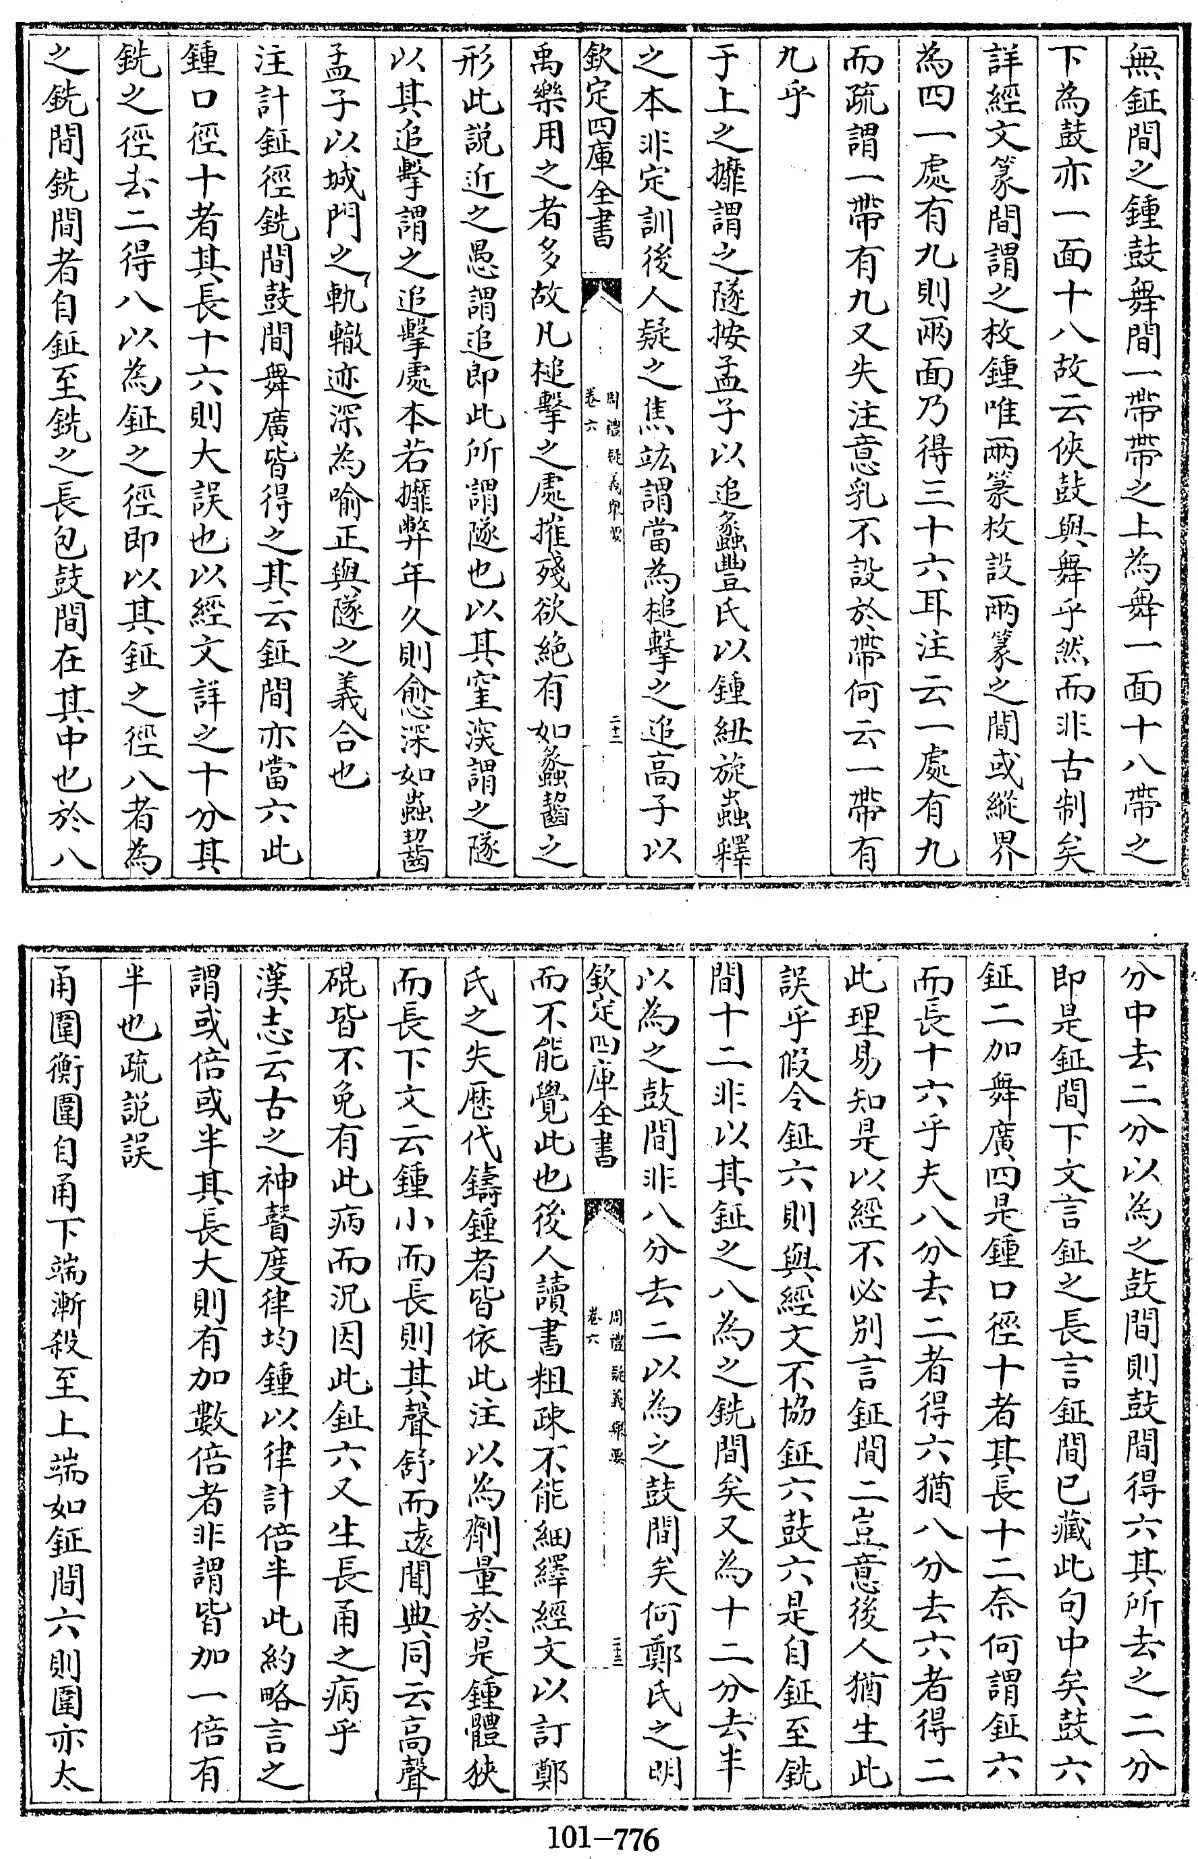 無鉦間之鍾鼓舞間一帶帶之上為舞一面十八帶之
下為鼓亦一面十八故云俠鼓與舞乎然而非古制矣
詳經文篆間謂之枚鍾唯兩篆枚設兩篆之間或縱界
為四一處有九則兩面乃得三十六耳注云一處有九
而疏謂一帶有九又失注意乳不設於帶何云一帶有
九乎
于上之攠謂之隧按孟子以追蠡豐氏以鍾紐旋蟲釋
之本非定訓後人疑之焦竑謂當為槌擊之追高子以
欽定四庫全書
周禮疑義舉要
卷六
二十二
禹樂用之者多故凡槌擊之處摧殘欲絶有如蠡齧之
形此説近之愚謂追即此所謂隧也以其窐深謂之隧
以其追擊謂之追擊處本若攠弊年久則愈深如蟲齧
孟子以城門之軌轍迹深為喻正與隧之義合也
注計鉦徑銑間鼓間舞廣皆得之其云鉦間亦當六此
鍾口徑十者其長十六則大誤也以經文詳之十分其
銑之徑去二得八以為鉦之徑即以其鉦之徑八者為
之銑間銑間者自鉦至銑之長包鼓間在其中也於八
分中去二分以為之鼓間則鼓間得六其所去之二分
即是鉦間下文言鉦之長言鉦間已藏此句中矣鼓六
鉦二加舞廣四是鍾口徑十者其長十二奈何謂鉦六
而長十六乎夫八分去二者得六猶八分去六者得二
此理易知是以經不必別言鉦間二豈意後人猶生此
誤乎假令鉦六則與經文不協鉦六鼓六是自鉦至銑
間十二非以其鉦之八為之銑間矣又為十二分去半
以為之鼓間非八分去二以為之鼓間矣何鄭氏之明
欽定四庫全書
周禮疑義舉要
卷六
二十三
而不能覺此也後人讀書粗疎不能細繹經文以訂鄭
氏之失歷代鑄鍾者皆依此注以為劑量於是鍾體狹
而長下文云鍾小而長則其聲舒而遠聞典同云高聲
硍皆不免有此病而況因此鉦六又生長甬之病乎
漢志云古之神瞽度律均鍾以律計倍半此約略言之
謂或倍或半其長大則有加數倍者非謂皆加一倍有
半也疏説誤
甬圍衡圍自甬下端漸殺至上端如鉦間六則圍亦太
101-776